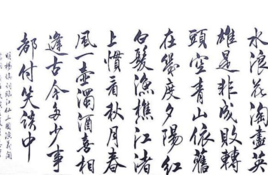 水浪花淘盡英
雄是非成敗轉
頭空青山依舊
在幾度夕陽紅
白髮漁樵江渚
上慣看秋月春
風一壺濁酒喜相
逢古今多少事
都付笑談中